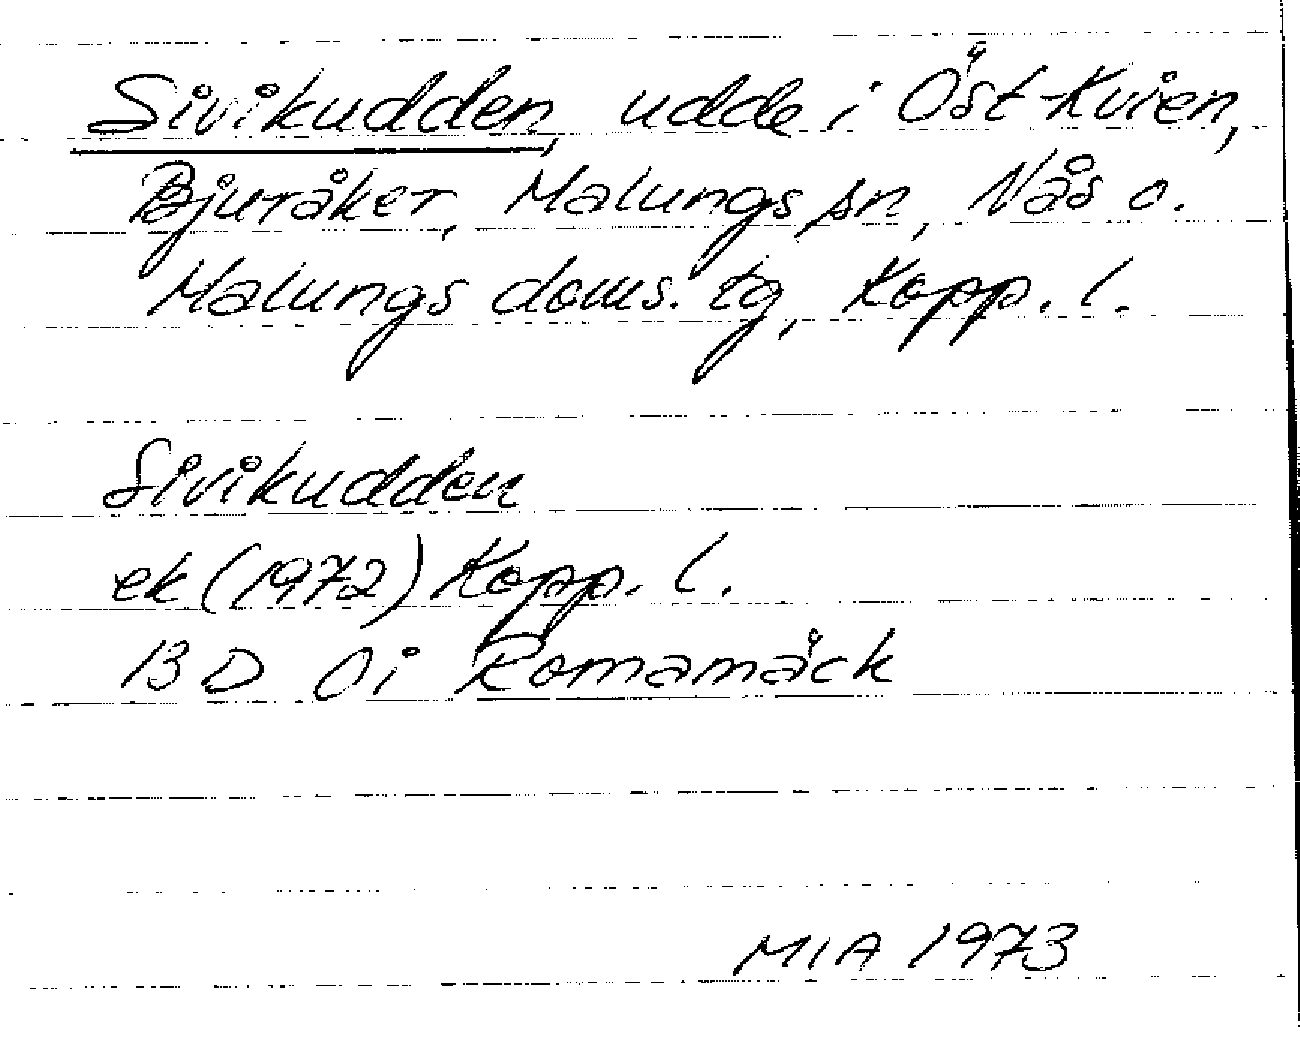 Sivikudden, udde i Öst-Kvien,
Bjuråker, Malungs sn, Nås o.
Malungs doms. tg, Kopp. l.
Sivikudden
ek (1972) Kopp. l.
13 D 0i Romamäck
MIA 1973